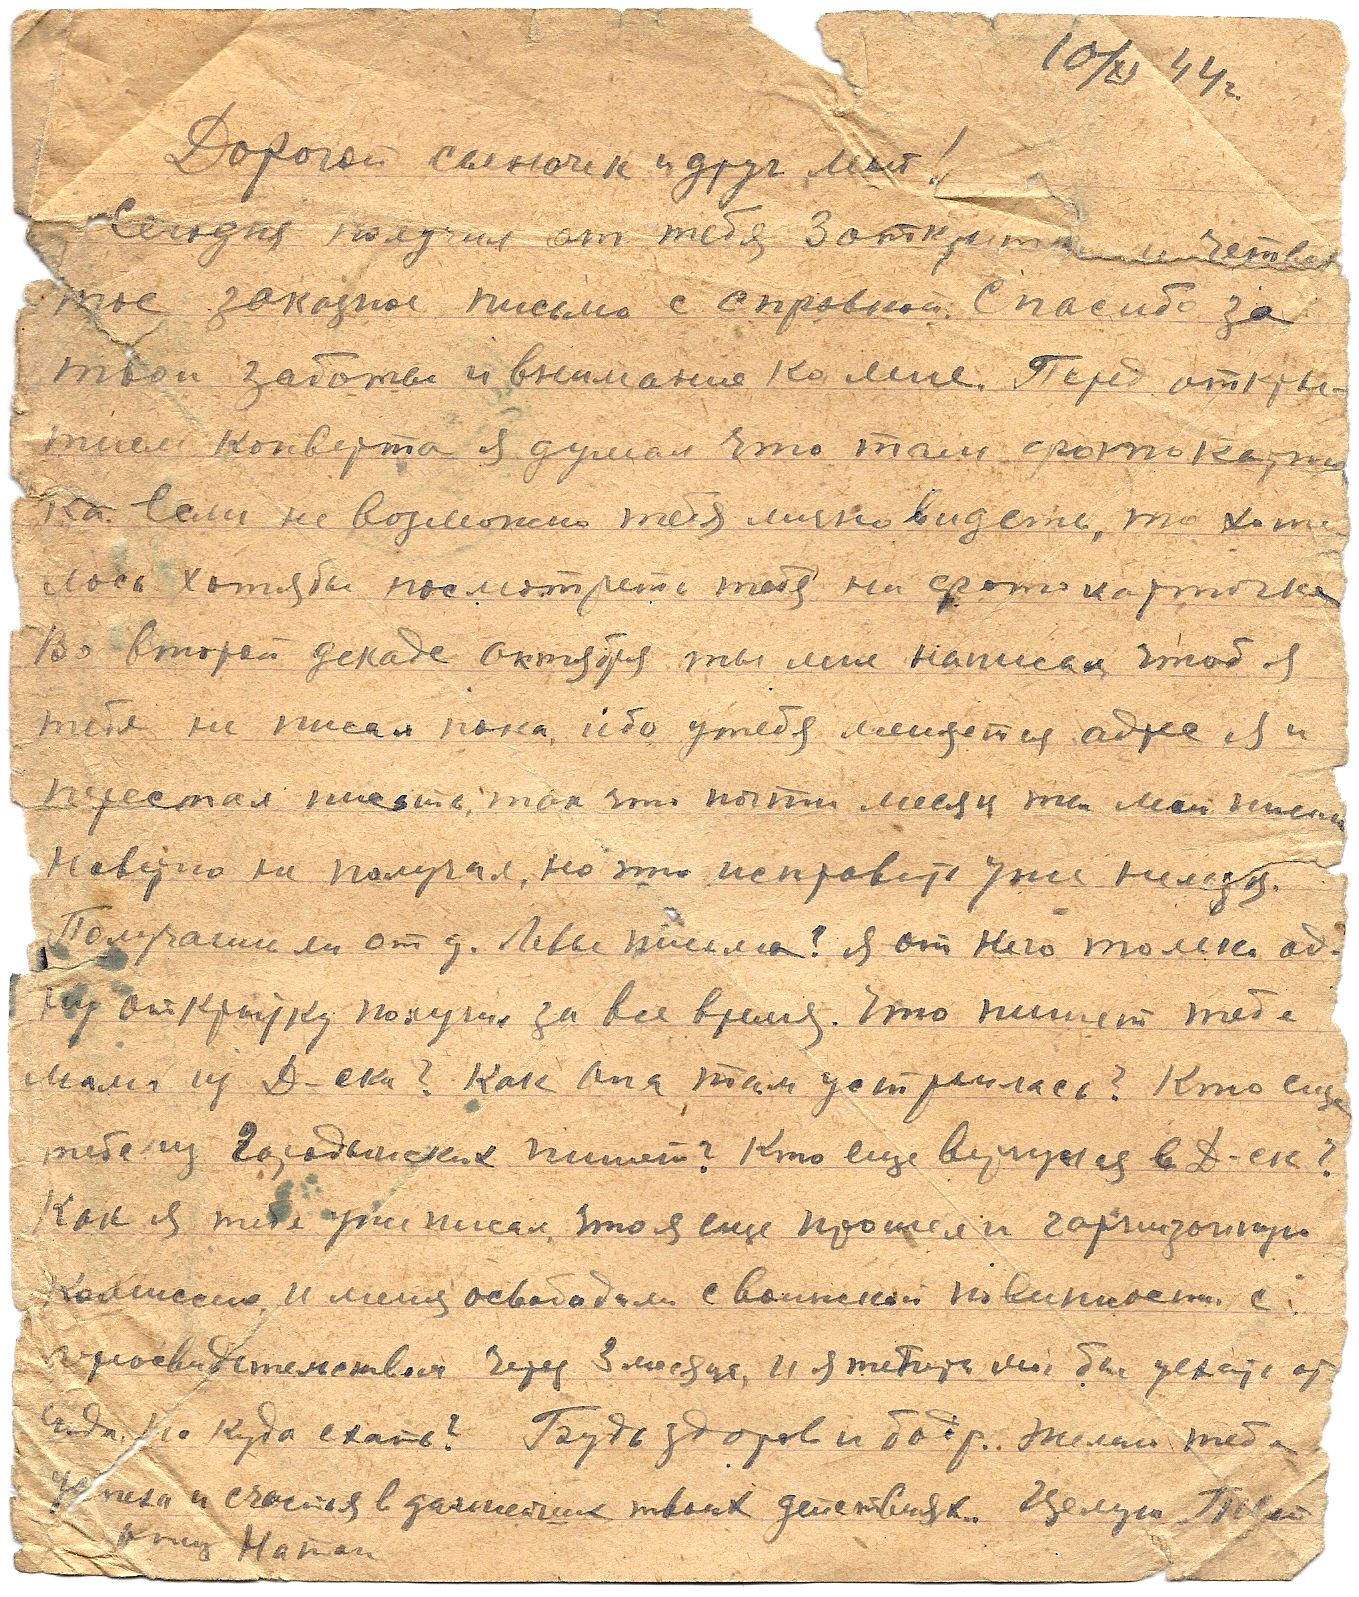 10/XI 44 г.
Дорогой сыночек и друг мой!
Сегодня получил от тебя 3 открытки и четвер
тое заказное письмо с справкой. Спасибо за
твои заботы и внимание ко мне. Перед откры-
тием конверта я думал что там фотокарточ
ка. Если не возможно тебя лично видеть, то хоте
лось хотябы посмотреть тебя на фотокарточке
Во второй декаде октября ты мне написал чтоб я
тебе не писал пока, ибо у тебя меняется адрес я и
перестал писать, так что почти месяц ты мои письма
наверно не получал, но это исправить уже нельзя.
Получаеш ли от д. Левы письма? Я от него только од-
ну открытку получил за все время. Что пишет тебе
мама из Д-ска? Как она там устроилась? Кто еще
тебе из пишет? Кто еще вернулся в Д-ск?
Как я тебе уже писал, что я еще прошел и гарнизонную
комиссию, и меня освободили с воинской повинности с
переосвидетельствован через 3 месяца, и я теперь мог бы уехать от
сюда. Но куда ехать? Будь здоров и бодр. Желаю тебе
успеха и счастья в дальнейших твоих действиях. Целую Твой
отец Натан